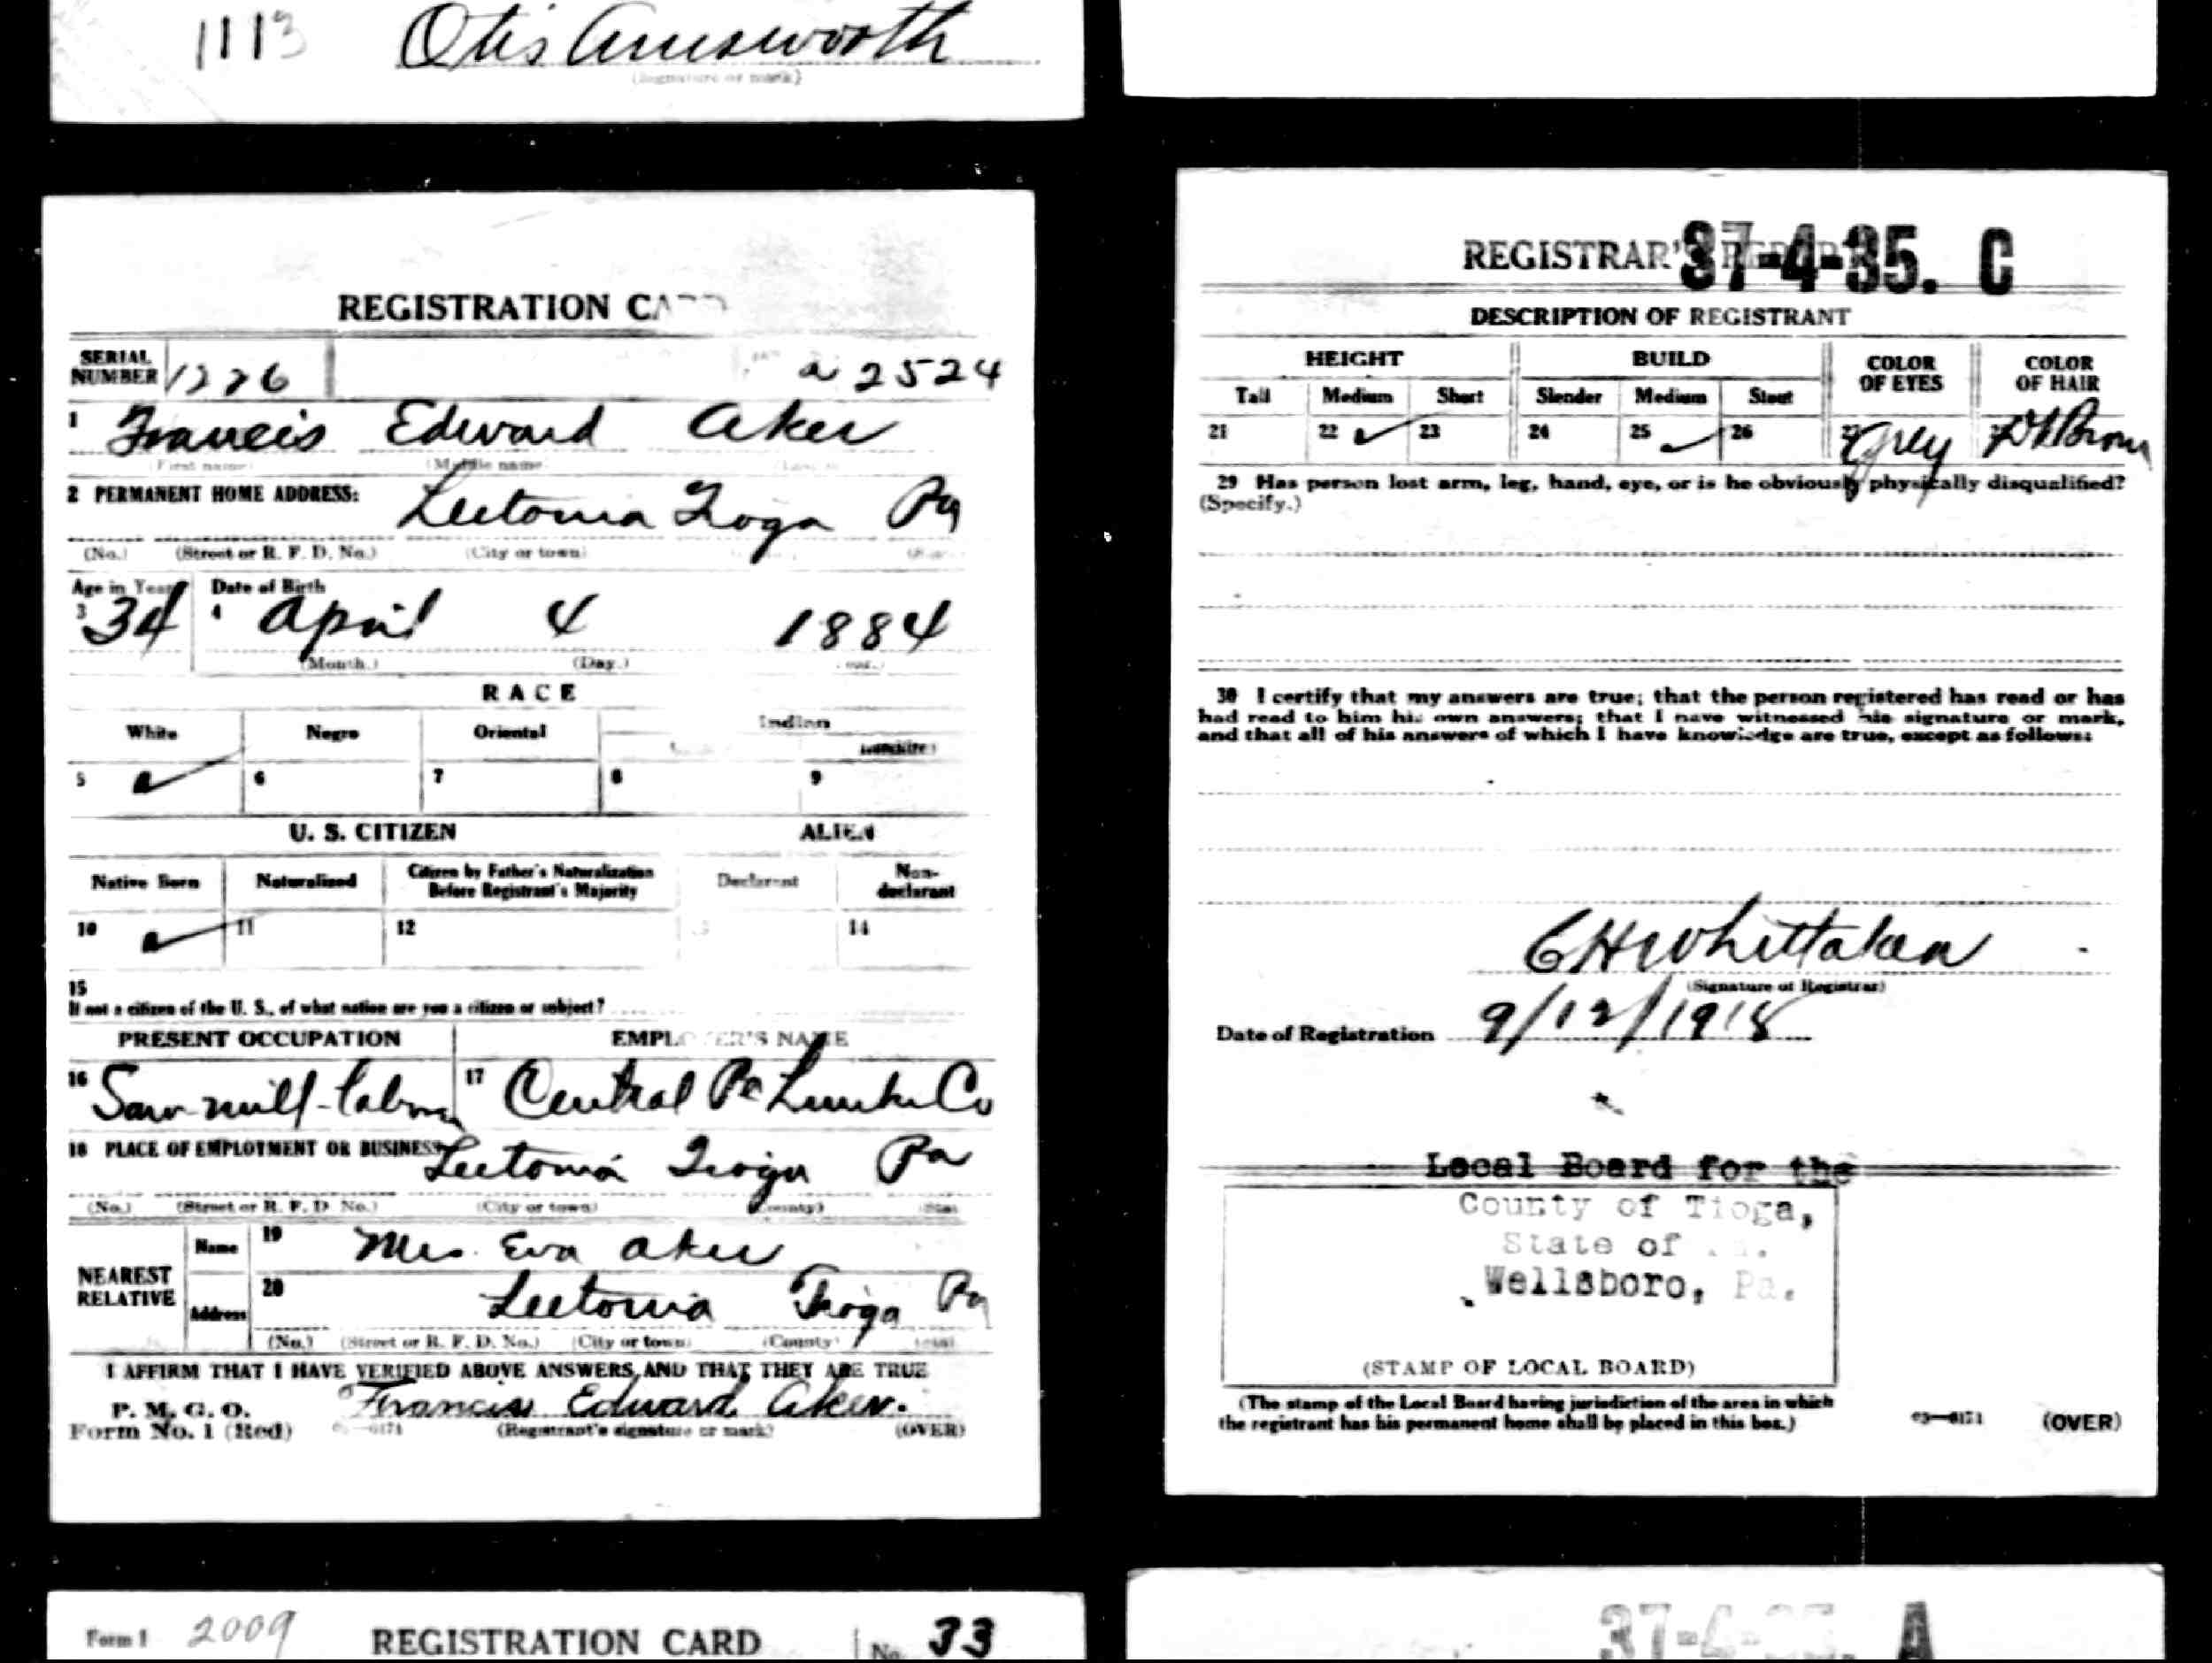 1113 Otis Ainsworth
(Signature or mark)
REGISTRATION CARD
SERIAL NUMBER 1226 a 2524
1 Francis Edward Aker
(First name) (Middle name)
2 PERMANENT HOME ADDRESS: Leetonia Tioga Pa
(No.) (Street or R. F. D. No.) (City or town)
Age in Years Date of Birth
3 34 4 April 4 1884
(Month.) (Day.)
RACE
White Negro Oriental Indian
5 ✓ 6 7 8 9
U. S. CITIZEN ALIEN
Native Born Naturalized Citizen by Father's Naturalization Before Registrant's Majority Declarant Non-declarant
10 ✓ 11 12 14
15
If not a citizen of the U. S., of what nation are you a citizen or subject?
PRESENT OCCUPATION EMPLOYER'S NAME
16 Saw-mill-labor 17 Central Pa Lumber Co
18 PLACE OF EMPLOYMENT OR BUSINESS: Leetonia Tioga Pa
(No.) (Street or R. F. D. No.) (City or town) (County) (State)
NEAREST RELATIVE Name 19 Mrs. Eva Aker
Address 20 Leetonia Tioga Pa
(No.) (Street or R. F. D. No.) (City or town) (County) (State)
I AFFIRM THAT I HAVE VERIFIED ABOVE ANSWERS AND THAT THEY ARE TRUE
P. M. G. O.
Form No. 1 (Red) Francis Edward Aker.
03—6171 (Registrant's signature or mark) (OVER)
Form 1 2009 REGISTRATION CARD No. 33
REGISTRAR'S REPORT 37-4-35. C
DESCRIPTION OF REGISTRANT
HEIGHT BUILD COLOR OF EYES COLOR OF HAIR
Tall Medium Short Slender Medium Stout
21 22 ✓ 23 24 25 ✓ 26 27 Grey Dk Brown
29 Has person lost arm, leg, hand, eye, or is he obviously physically disqualified?
(Specify.)
30 I certify that my answers are true; that the person registered has read or has
had read to him his own answers; that I have witnessed his signature or mark,
and that all of his answers of which I have knowledge are true, except as follows:
C H Whittaker
(Signature of Registrar)
Date of Registration 9/12/1918
Local Board for the
County of Tioga,
State of Pa.
Wellsboro, Pa.
(STAMP OF LOCAL BOARD)
(The stamp of the Local Board having jurisdiction of the area in which
the registrant has his permanent home shall be placed in this box.)
03—6171 (OVER)
37-4-35. A